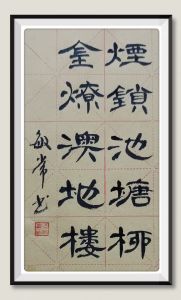 煙鎖池塘柳
金燎澳地樓
敏常书